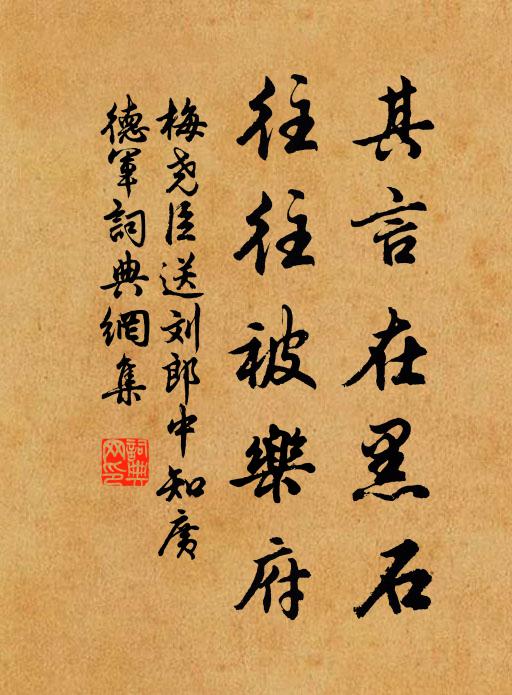 其言在黑石
往往被樂府
梅尧臣送刘郎中知廣
德軍詞典網集
詞典网印